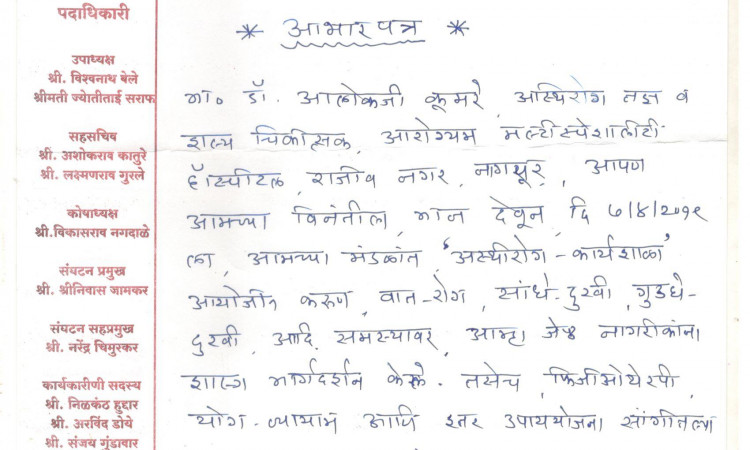 पदाधिकारी
उपाध्यक्ष
श्री. विश्वनाथ बेले
श्रीमती ज्योतीताई सराफ
सहसचिव
श्री. अशोकराव कातुरे
श्री. लक्ष्मणराव गुरले
कोषाध्यक्ष
श्री.विकासराव नगदाळे
संघटन प्रमुख
श्री. श्रीनिवास जामकर
संघटन सहप्रमुख
श्री. नरेंद्र चिमुरकर
कार्यकारीणी सदस्य
श्री. निळकंठ हुद्दार
श्री. अरविंद डोये
श्री. संजय गुंडावार
* आभार पत्र *
मा. डॉ. आलोकजी कूमरे, अस्थिरोग तज्ञ व
शल्य चिकीत्सक, आरोग्यम मल्टीस्पेशालीटी
हॉस्पीटल, राजीव नगर, नागपूर, आपण
आमच्या विनंतीला, मान देवून, दि ७/४/२०१९
ला, आमच्या मंडळांत, 'अस्थीरोग-कार्यशाळा'
आयोजीत करुण, वात-रोग, सांधे-दुखी, गुडघे-
दुखी, आदि समस्यावर, आम्हा जेष्ठ नागरीकांना
मार्गदर्शन केले. तसेच, फिजीओथेरपी,
योग-व्यायाम आणि इतर उपाययोजना सांगीतल्या